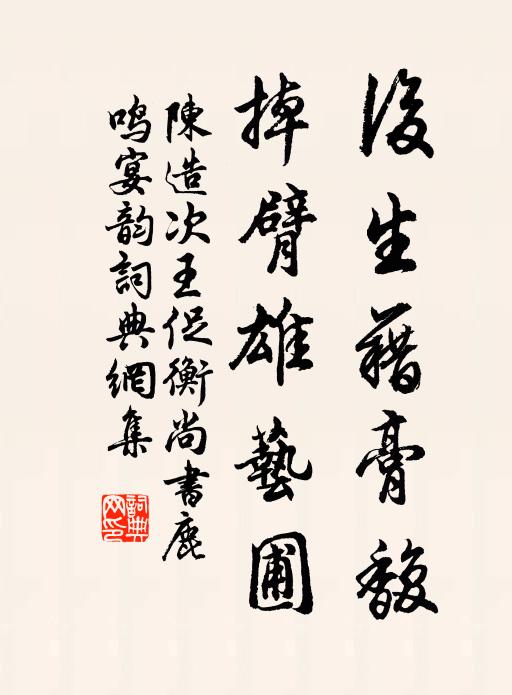 後生藉膏馥
掉臂雄藝圃
陳造次王促衡尚書鹿
鸣宴韵詞典網集
詞典网印